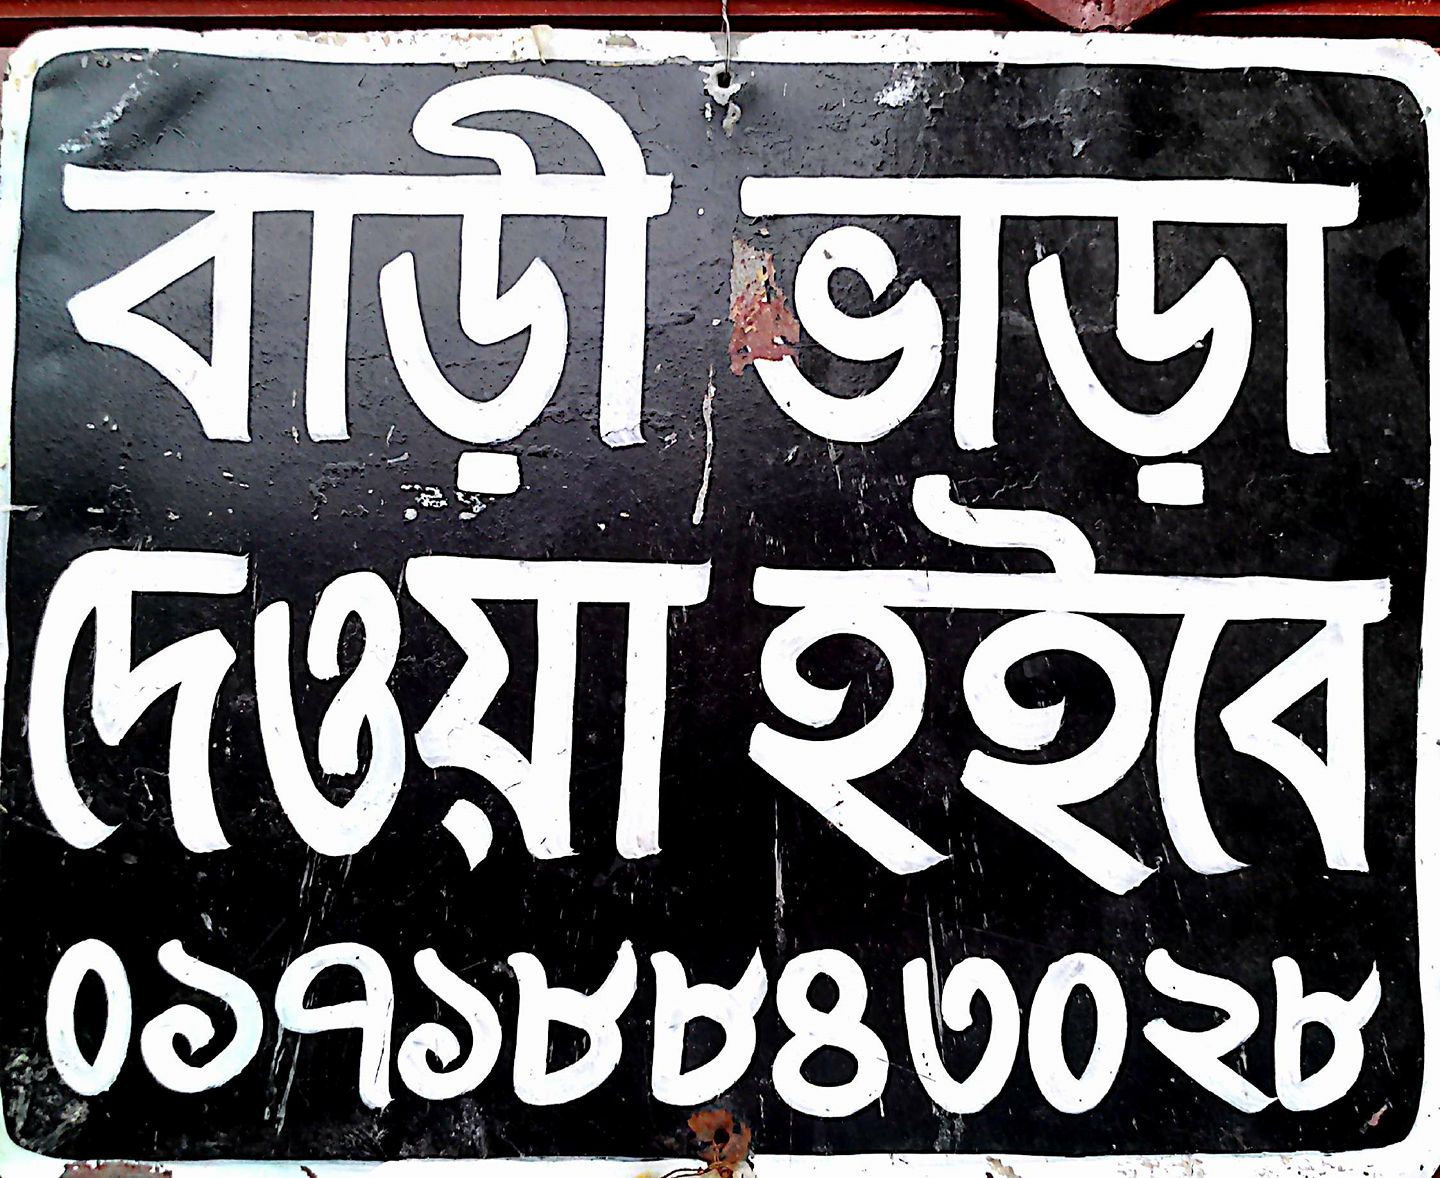 বাড়ী ভাড়া
দেওয়া হইবে
০১৭১৮৮৪৩০২৮